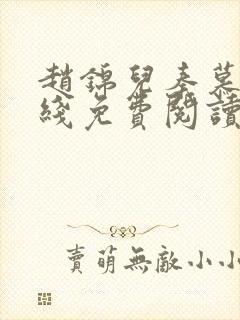 趙錦兒秦慕
綫免費閱讀
賣萌無敵小小